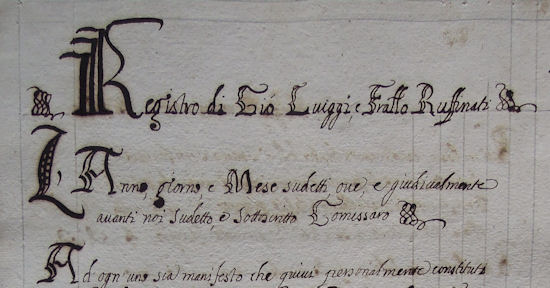 Registro di Gio Luiggi, e Fratto Ruffinati
L'Anno, giorno, e Mese sudetti ove, e giudicialmente
avanti noi sudetto, e sottoscritto Comissaro
Ad ogn'uno sia manifesto che quivi personalmente constituti